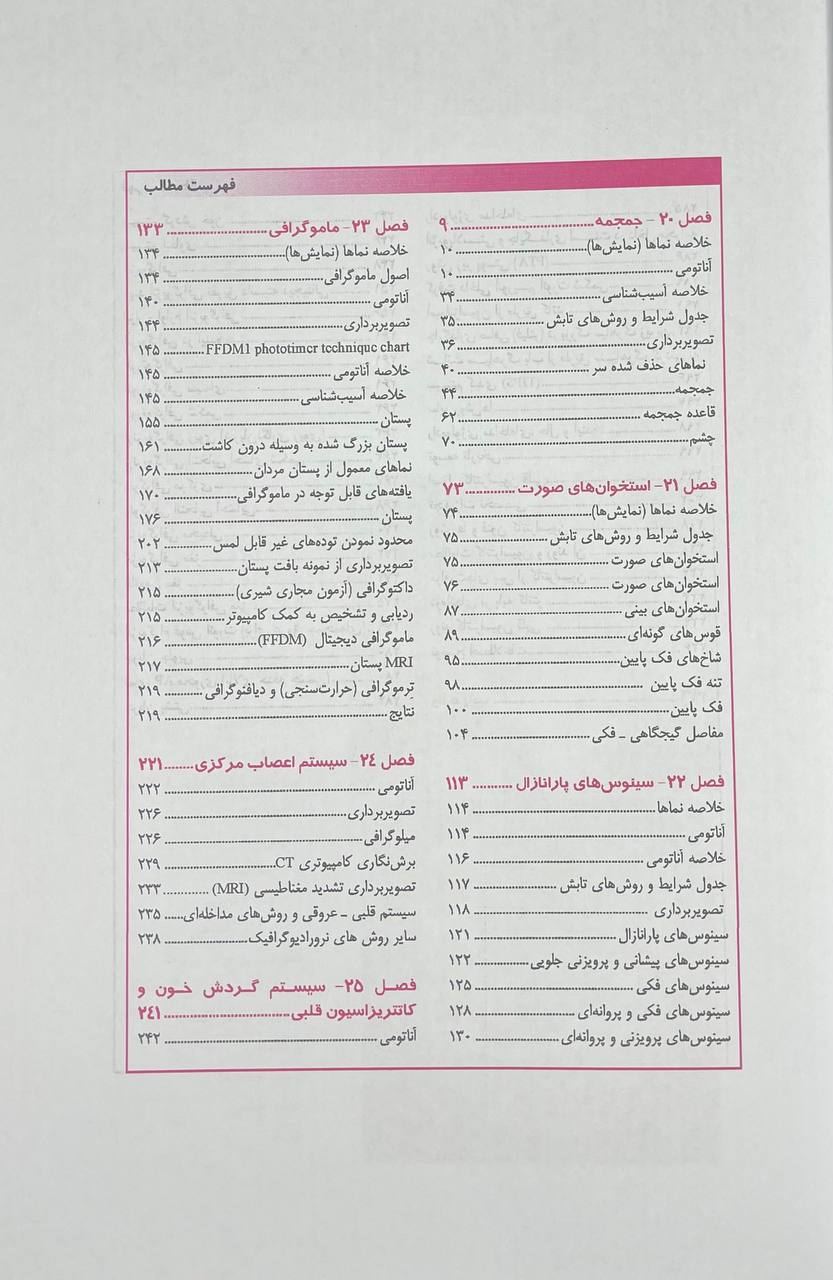 فهرست مطالب
فصل ۲۰- جمجمه ۹
خلاصه نماها (نمایش‌ها) ۱۰
آناتومی ۱۰
خلاصه آسیب‌شناسی ۳۴
جدول شرایط و روش‌های تابش ۳۵
تصویربرداری ۳۶
نماهای حذف شده سر ۴۰
جمجمه ۴۴
قاعده جمجمه ۶۲
چشم ۷۰
فصل ۲۱- استخوان‌های صورت ۷۳
خلاصه نماها (نمایش‌ها) ۷۴
جدول شرایط و روش‌های تابش ۷۵
استخوان‌های صورت ۷۵
استخوان‌های صورت ۷۶
استخوان‌های بینی ۸۷
قوس‌های گونه‌ای ۸۹
شاخ‌های فک پایین ۹۵
تنه فک پایین ۹۸
فک پایین ۱۰۰
مفاصل گیجگاهی ـ فکی ۱۰۴
فصل ۲۲- سینوس‌های پارانازال ۱۱۳
خلاصه نماها ۱۱۴
آناتومی ۱۱۴
خلاصه آناتومی ۱۱۶
جدول شرایط و روش‌های تابش ۱۱۷
تصویربرداری ۱۱۸
سینوس‌های پارانازال ۱۲۱
سینوس‌های پیشانی و پرویزنی جلویی ۱۲۲
سینوس‌های فکی ۱۲۵
سینوس‌های فکی و پروانه‌ای ۱۲۸
سینوس‌های پرویزنی و پروانه‌ای ۱۳۰
فصل ۲۳- ماموگرافی ۱۳۳
خلاصه نماها (نمایش‌ها) ۱۳۴
اصول ماموگرافی ۱۳۴
آناتومی ۱۴۰
تصویربرداری ۱۴۴
FFDM1 phototimer technique chart ۱۴۵
خلاصه آناتومی ۱۴۵
خلاصه آسیب‌شناسی ۱۴۵
پستان ۱۵۵
پستان بزرگ شده به وسیله درون کاشت ۱۶۱
نماهای معمول از پستان مردان ۱۶۸
یافته‌های قابل توجه در ماموگرافی ۱۷۰
پستان ۱۷۶
محدود نمودن توده‌های غیر قابل لمس ۲۰۲
تصویربرداری از نمونه بافت پستان ۲۱۳
داکتوگرافی (آزمون مجاری شیری) ۲۱۵
ردیابی و تشخیص به کمک کامپیوتر ۲۱۵
ماموگرافی دیجیتال (FFDM) ۲۱۶
MRI پستان ۲۱۷
ترموگرافی (حرارت‌سنجی) و دیافنوگرافی ۲۱۹
نتایج ۲۱۹
فصل ۲۴- سیستم اعصاب مرکزی ۲۲۱
آناتومی ۲۲۲
تصویربرداری ۲۲۶
میلوگرافی ۲۲۶
برش‌نگاری کامپیوتری CT ۲۲۹
تصویربرداری تشدید مغناطیسی (MRI) ۲۳۳
سیستم قلبی ـ عروقی و روش‌های مداخله‌ای ۲۳۵
سایر روش های نرورادیوگرافیک ۲۳۸
فصل ۲۵- سیستم گردش خون و
کاتتریزاسیون قلبی ۲۴۱
آناتومی ۲۴۲